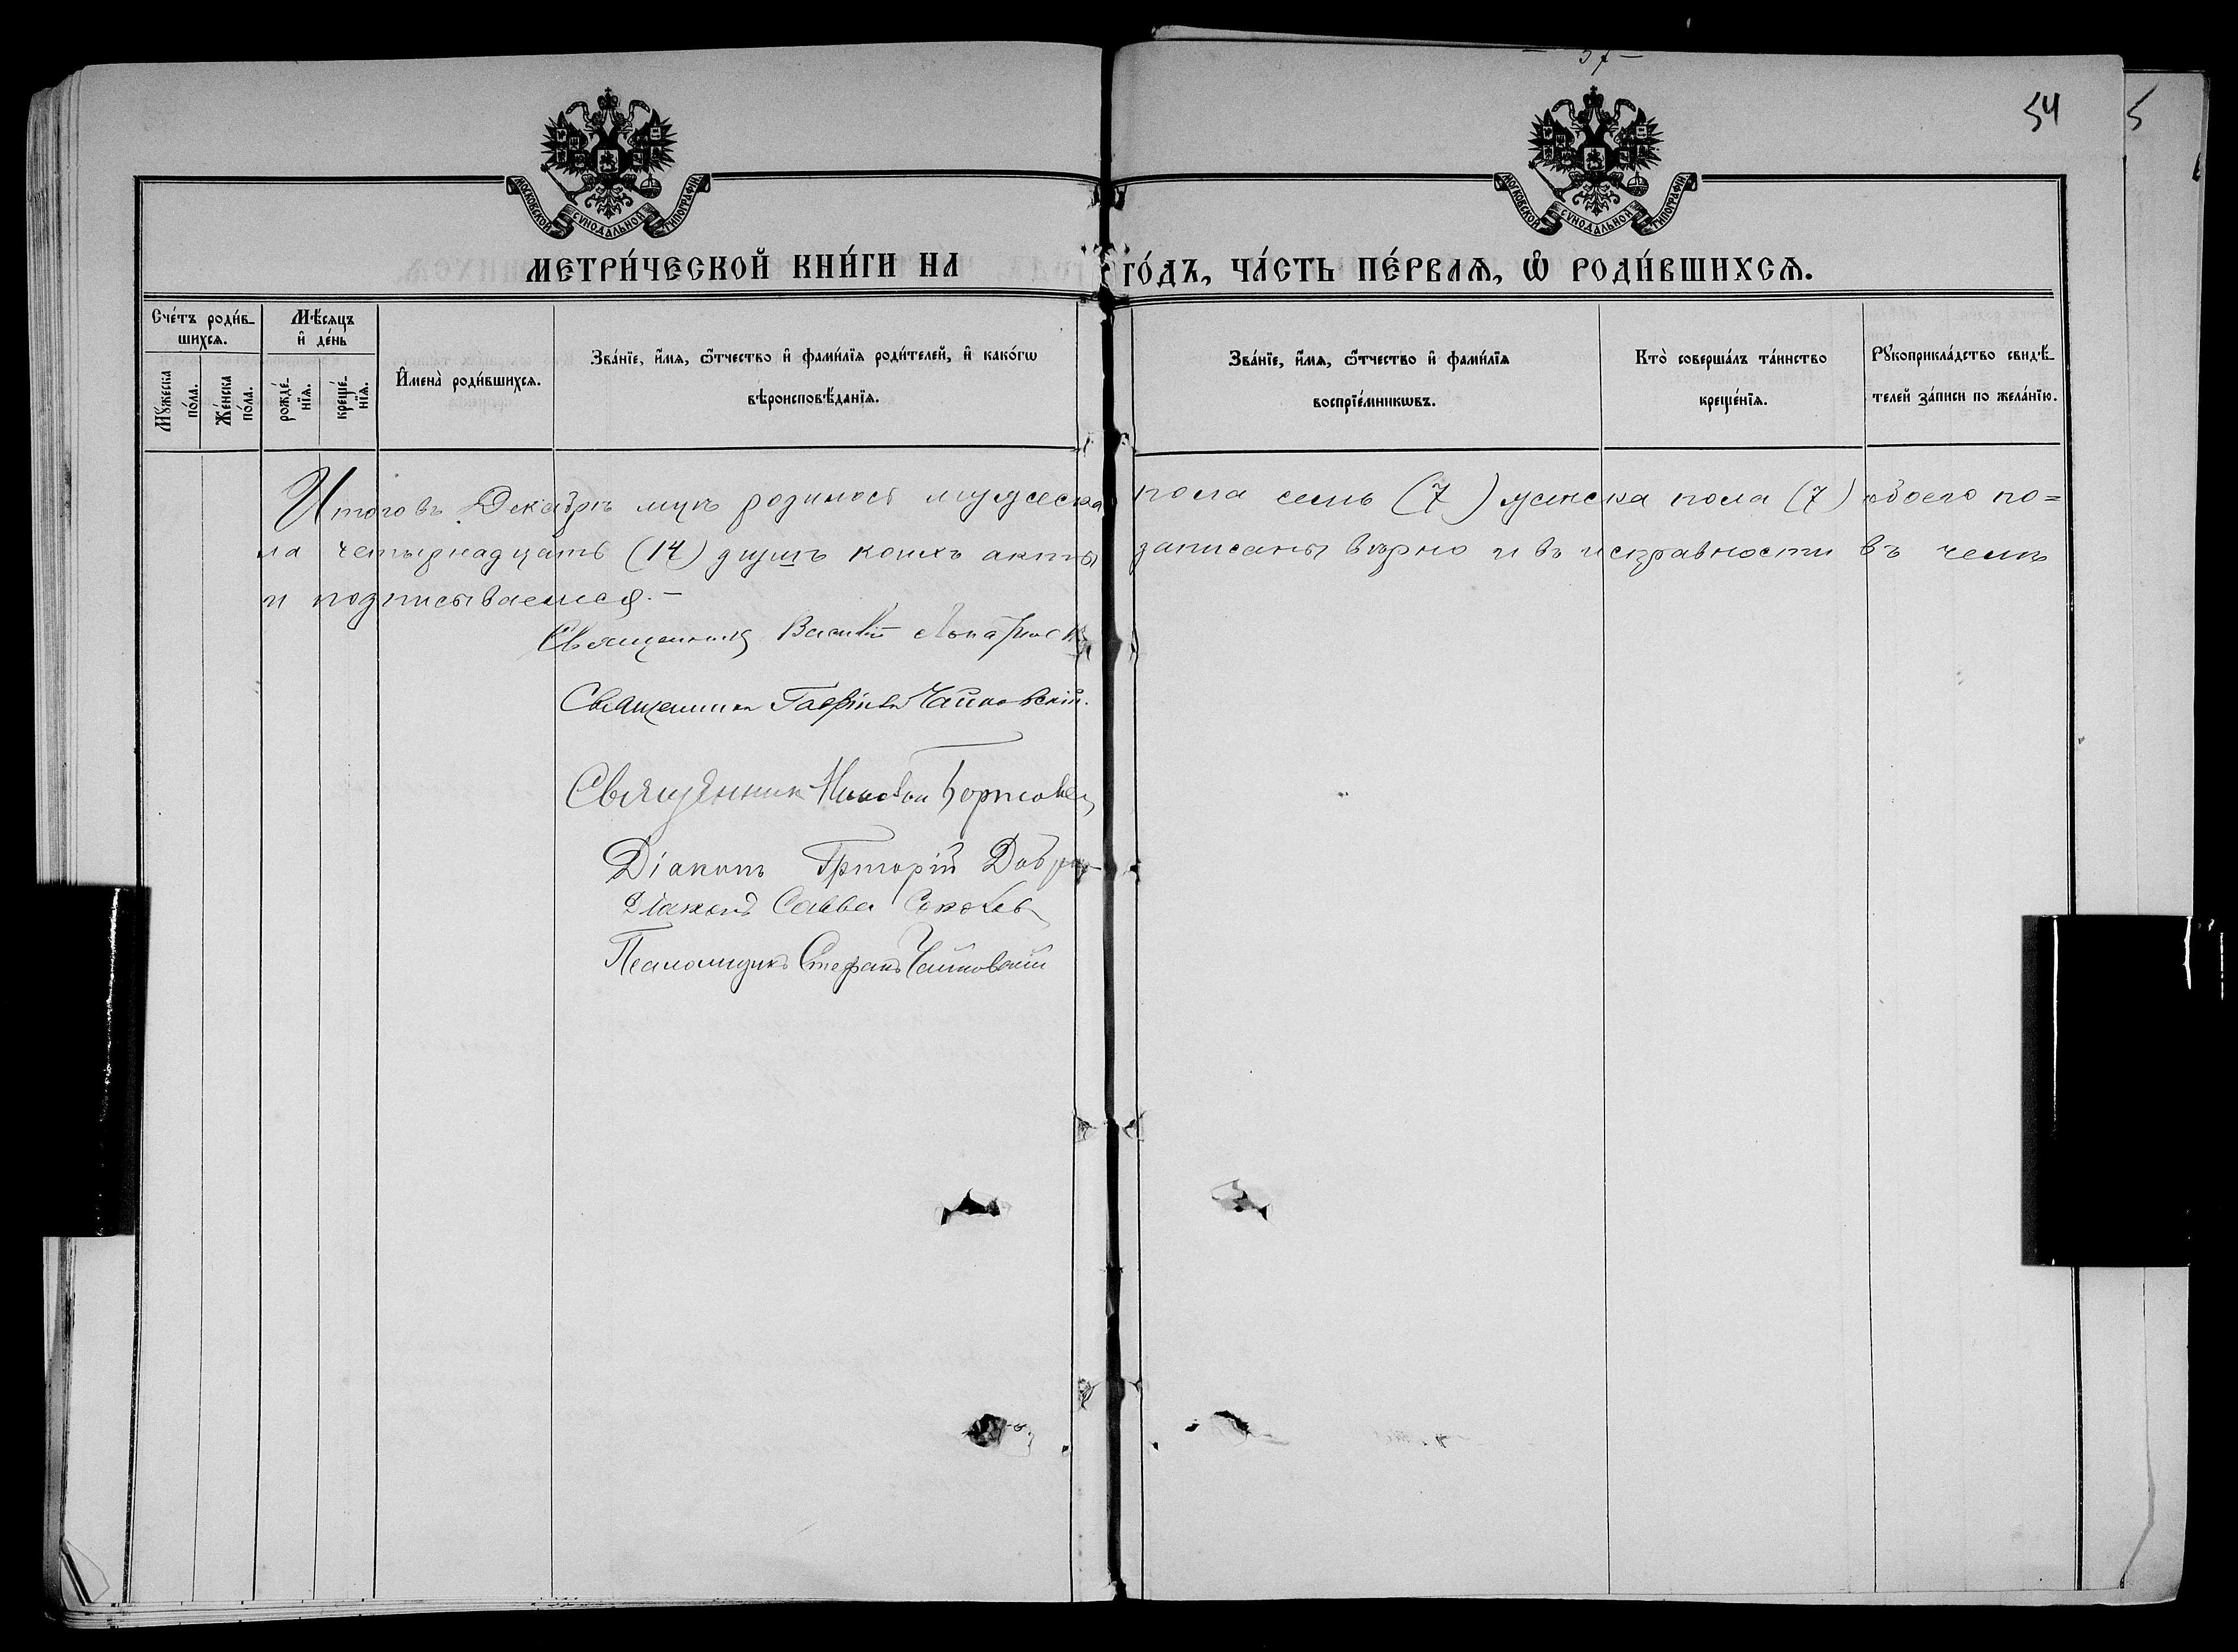 — 37 —
54
5
МОСКОВСКОЙ СѴНОДАЛЬНОЙ ТИПОГРАФІИ
МОСКОВСКОЙ СѴНОДАЛЬНОЙ ТИПОГРАФІИ
МЕТРИ́ЧЕСКОЙ КНИ́ГИ НА ГО́ДЪ, ЧА́СТЬ ПЕ́РВАѦ, Ѽ РОДИ́ВШИХСѦ.
Сче́тъ роди́вшихсѧ.
Мꙋ́жеска по́ла.
Же́нска по́ла.
Мѣ́сѧцъ и҆ де́нь
рожде́нїѧ.
креще́нїѧ.
И҆мена̀ роди́вшихсѧ.
Зва́нїе, и҆́мѧ, ѻ҆́тчество и҆ фами́лїѧ роди́телей, и҆ како́гѡ
вѣроисповѣ́данїѧ.
Зва́нїе, и҆́мѧ, ѻ҆́тчество и҆ фами́лїѧ
воспрїе́мникѡвъ.
Кто̀ соверша́лъ та́инство
креще́нїѧ.
Рꙋкоприкла́дство свидѣ́-
телей за́писи по жела́нїю.
Итого въ Декабрѣ мцѣ родилось мужеска пола семь (7) женска пола (7) обоего по=
ла четырнадцать (14) душъ коихъ акты записаны вѣрно и въ исправности въ чемъ
и подписываемся. –
Священникъ Василій
Священникъ Гавріилъ Чайковскій.
Священник Николай Борисовъ
Діаконъ Григорій
Діаконъ Савва Соколовъ
Псаломщикъ Стефанъ Чайковскій